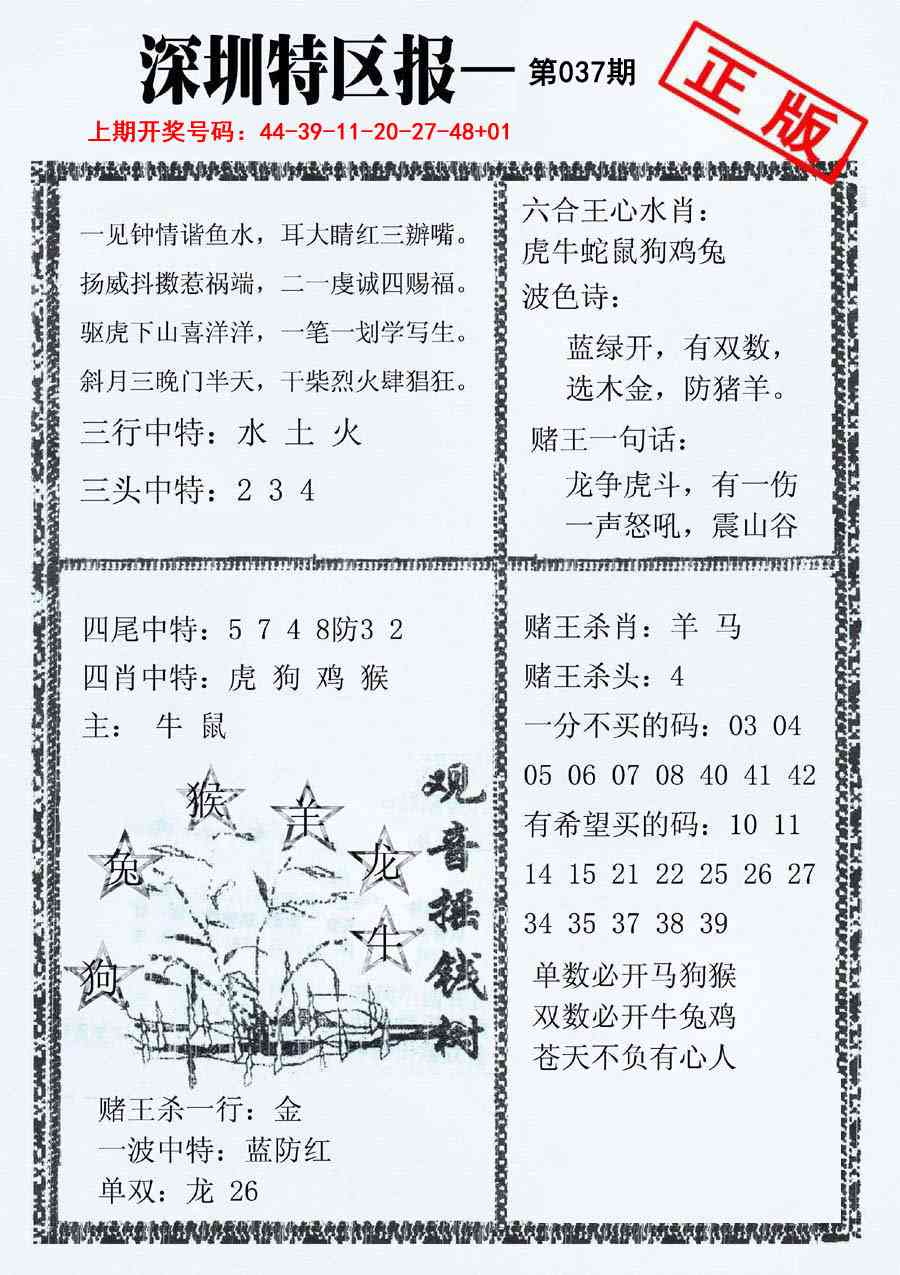 深圳特区报—第037期
正版
上期开奖号码：44-39-11-20-27-48+01
一见钟情谐鱼水，耳大睛红三辦嘴。
扬威抖擞惹祸端，二一虔诚四赐福。
驱虎下山喜洋洋，一笔一划学写生。
斜月三晚门半天，干柴烈火肆猖狂。
三行中特：水 土 火
三头中特：2 3 4
六合王心水肖：
虎牛蛇鼠狗鸡兔
波色诗：
蓝绿开，有双数，
选木金，防猪羊。
赌王一句话：
龙争虎斗，有一伤
一声怒吼，震山谷
四尾中特：5 7 4 8防3 2
四肖中特：虎 狗 鸡 猴
主： 牛 鼠
猴
羊
兔
龙
牛
狗
观音摇钱树
赌王杀一行：金
一波中特：蓝防红
单双：龙 26
赌王杀肖：羊 马
赌王杀头：4
一分不买的码：03 04
05 06 07 08 40 41 42
有希望买的码：10 11
14 15 21 22 25 26 27
34 35 37 38 39
单数必开马狗猴
双数必开牛兔鸡
苍天不负有心人